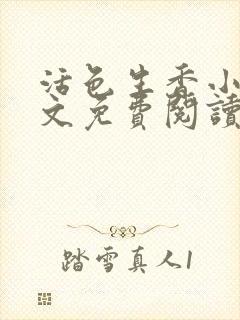 活色生香小
文免費閱讀
踏雪真人1